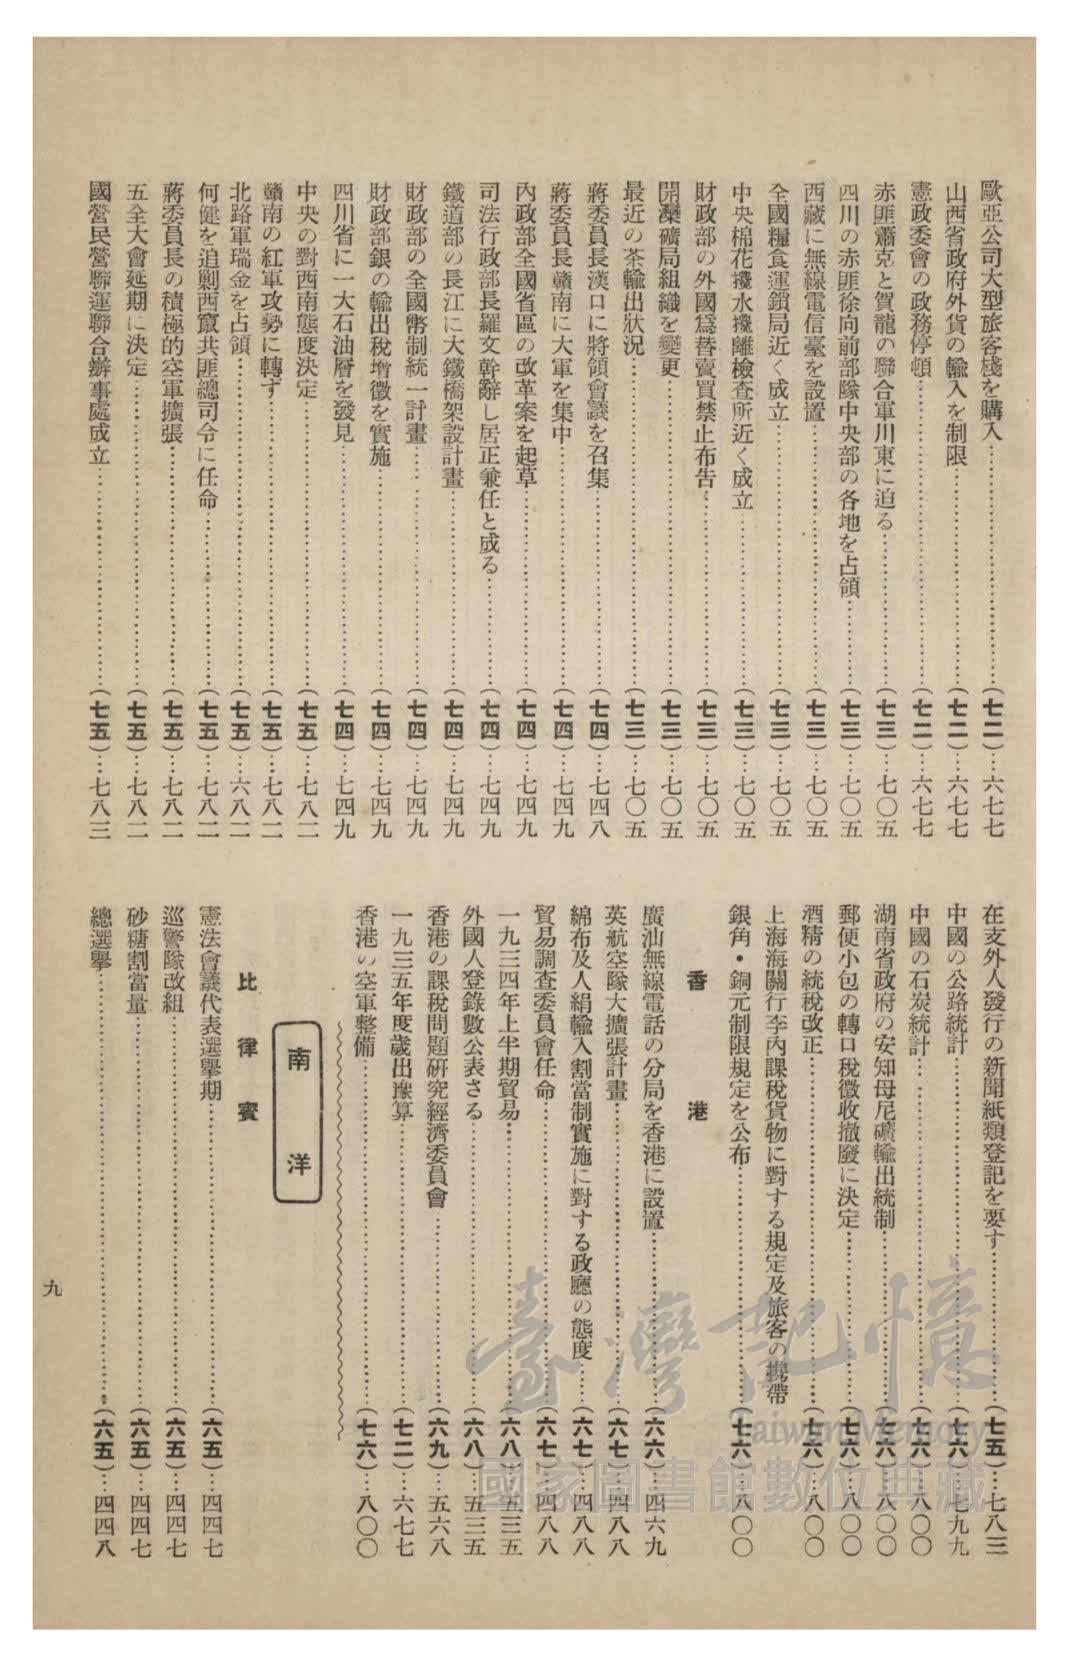 歐亞公司大型旅客棧を購入…(七二)…六七七
山西省政府外貨の輸入を制限…(七二)…六七七
憲政委會の政務停頓…(七二)…六七七
赤匪蕭克と賀龍の聯合軍川東に迫る…(七三)…七〇五
四川の赤匪徐向前部隊中央部の各地を占領…(七三)…七〇五
西藏に無線電信臺を設置…(七三)…七〇五
全國糧食運鎖局近く成立…(七三)…七〇五
中央棉花攙水攙離檢査所近く成立…(七三)…七〇五
財政部の外國爲替賣買禁止布告…(七三)…七〇五
開灤礦局組織を變更…(七三)…七〇五
最近の茶輸出狀況…(七三)…七〇五
蔣委員長漢口に將領會議を召集…(七四)…七四八
蔣委員長贛南に大軍を集中…(七四)…七四九
內政部全國省區の改革案を起草…(七四)…七四九
司法行政部長羅文幹辭し居正兼任と成る…(七四)…七四九
鐵道部の長江に大鐵橋架設計畫…(七四)…七四九
財政部の全國幣制統一計畫…(七四)…七四九
財政部銀の輸出稅增徵を實施…(七四)…七四九
四川省に一大石油層を發見…(七四)…七四九
中央の對西南態度決定…(七五)…七八二
贛南の紅軍攻勢に轉ず…(七五)…七八二
北路軍瑞金を占領…(七五)…六八二
何健を追剿西竄共匪總司令に任命…(七五)…七八二
蔣委員長の積極的空軍擴張…(七五)…七八二
五全大會延期に決定…(七五)…七八二
國營民營聯運聯合辦事處成立…(七五)…七八三
在支外人發行の新聞紙類登記を要す…(七五)…七八三
中國の公路統計…(七六)…七九九
中國の石炭統計…(七六)…八〇〇
湖南省政府の安知母尼礦輸出統制…(七六)…八〇〇
郵便小包の轉口稅徵收撤廢に決定…(七六)…八〇〇
酒精の統稅改正…(七六)…八〇〇
上海海關行李內課稅貨物に對する規定及旅客の攜帶
銀角・銅元制限規定を公布…(七六)…八〇〇
香港
廣汕無線電話の分局を香港に設置…(六六)…四六九
英航空隊大擴張計畫…(六七)…四八八
綿布及人絹輸入割當制實施に對する政廳の態度…(六七)…四八八
貿易調查委員會任命…(六七)…四八八
一九三四年上半期貿易…(六八)…五三五
外國人登錄數公表さる…(六八)…五三五
香港の課稅問題硏究經濟委員會…(六九)…五六八
一九三五年度歲出豫算…(七二)…六七七
香港の空軍整備…(七六)…八〇〇
南洋
比律賓
憲法會議代表選擧期…(六五)…四四七
巡警隊改組…(六五)…四四七
砂糖割當量…(六五)…四四七
總選擧…(六五)…四四八
九
臺灣記憶
Taiwan Memory
國家圖書館數位典藏